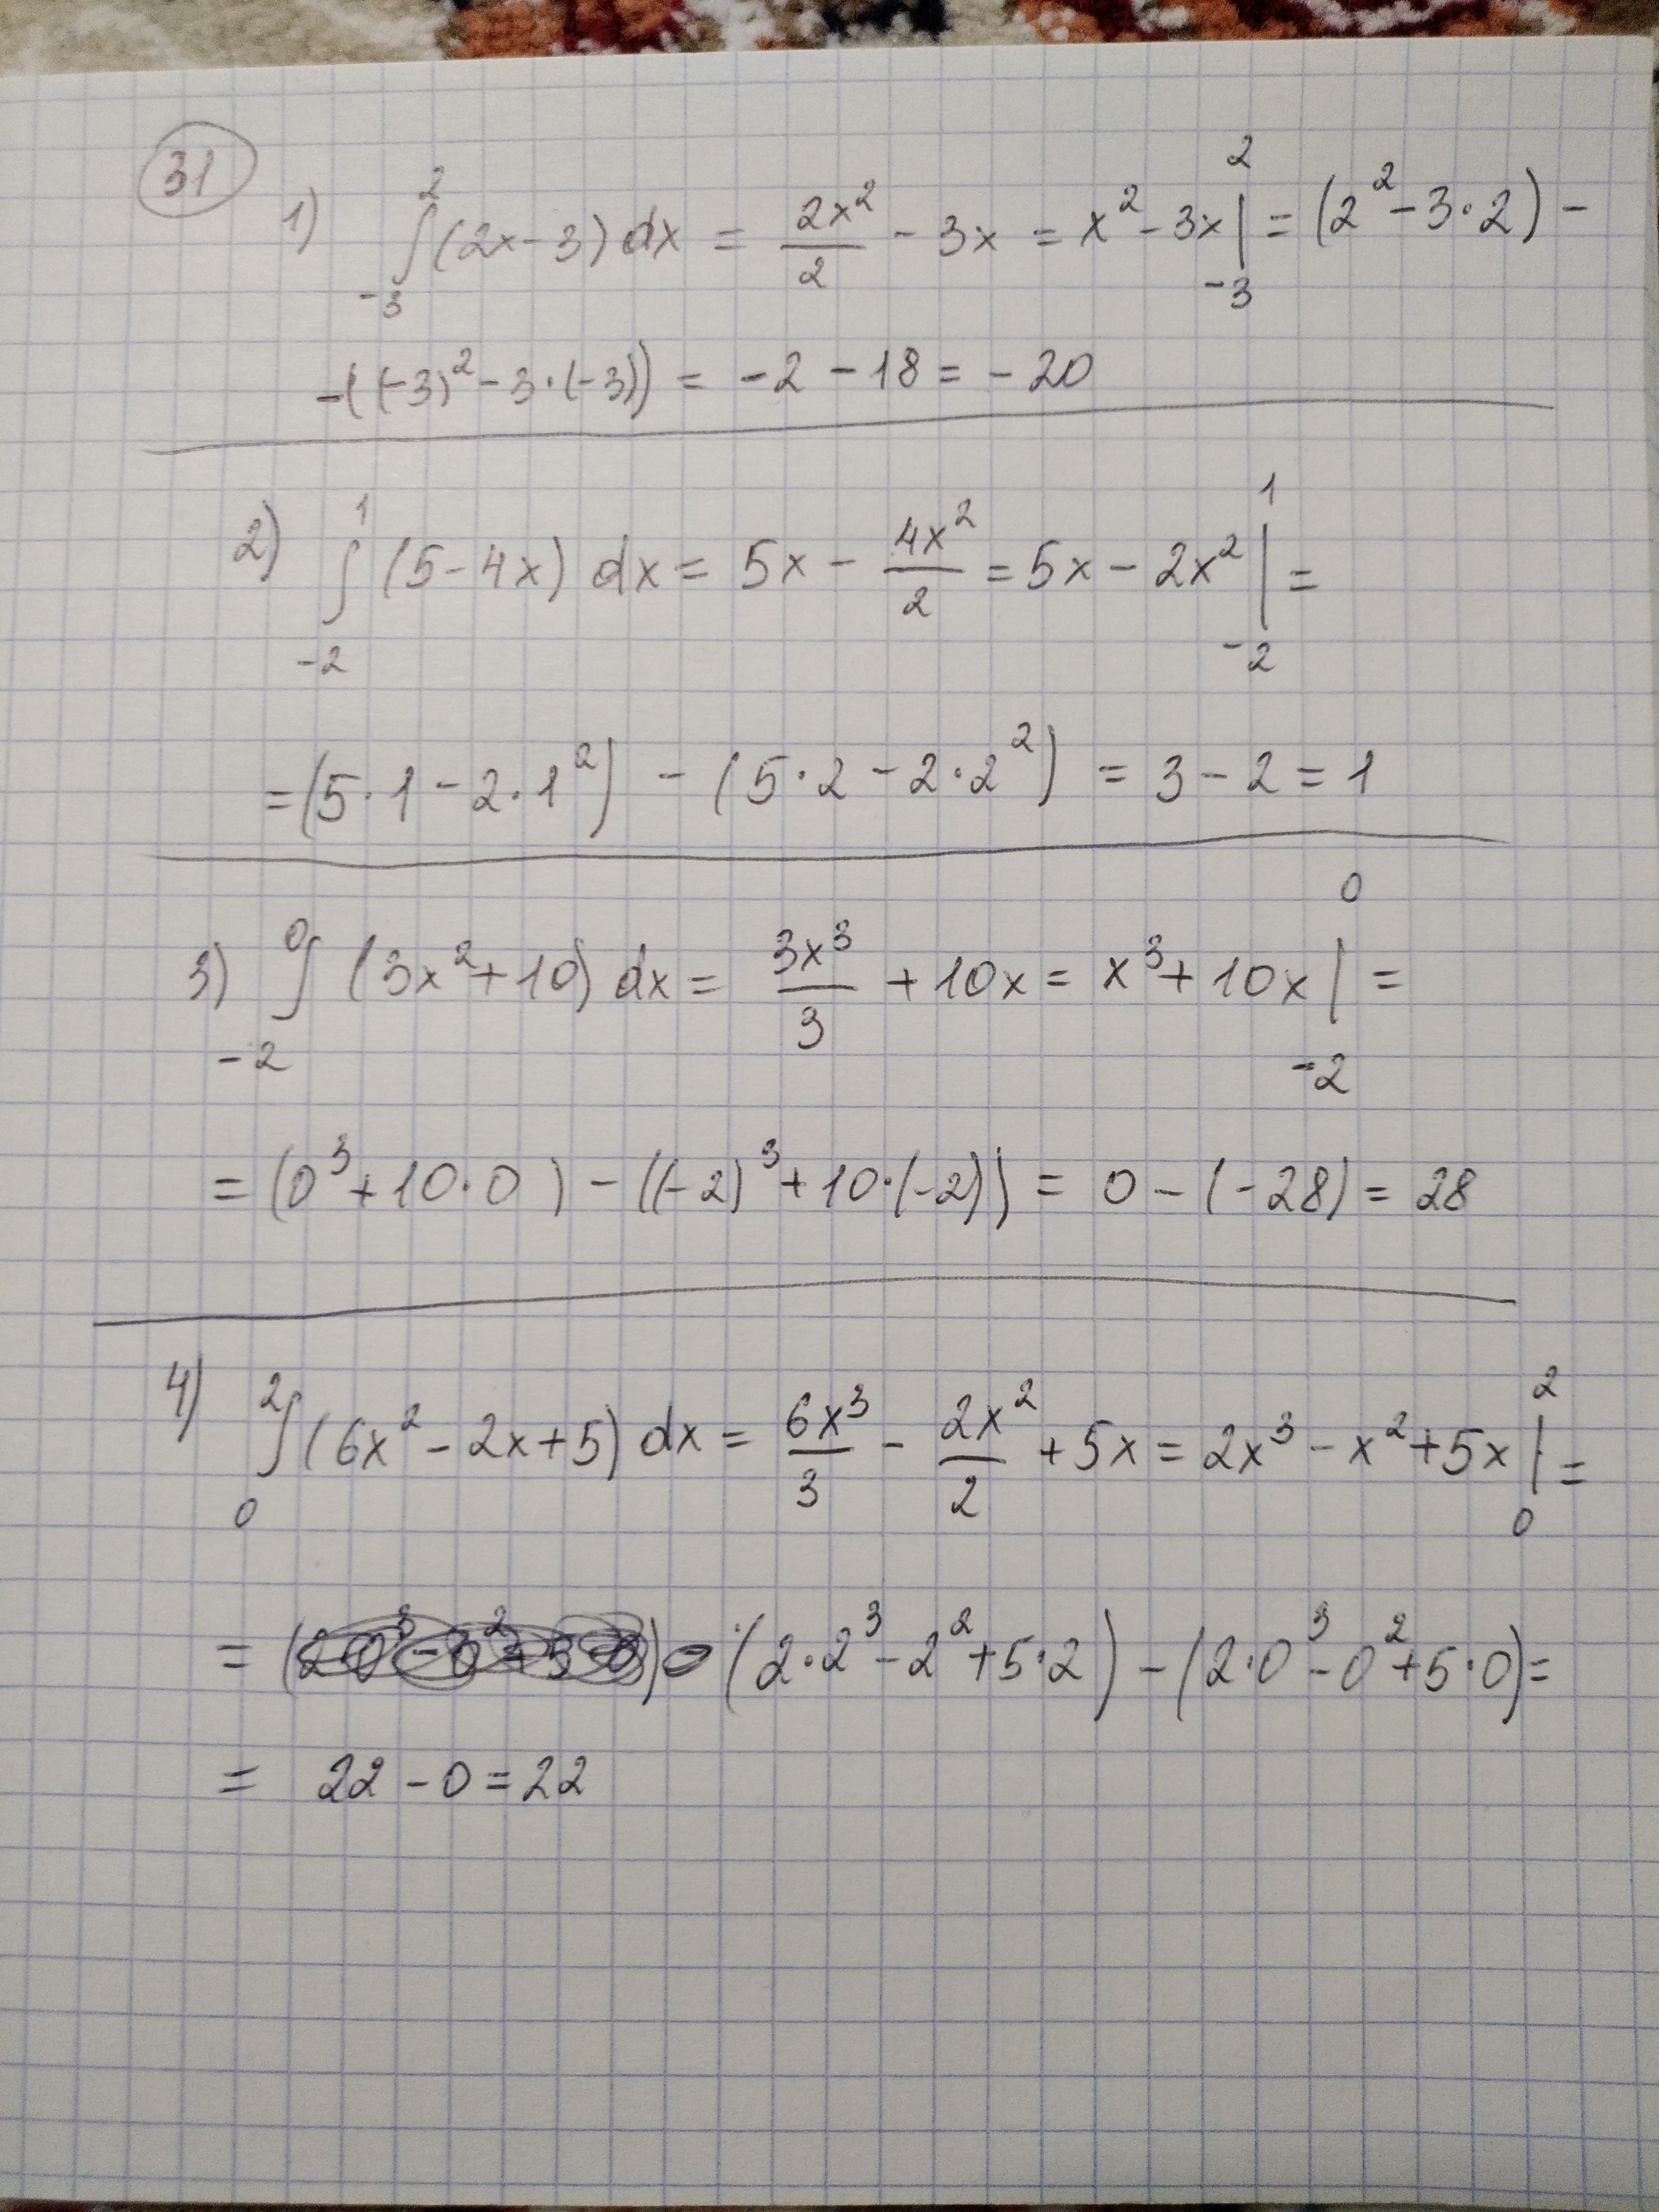 31
1) ∫_{-3}^{2} (2x-3) dx = \frac{2x^2}{2} - 3x = x^2 - 3x |_{-3}^{2} = (2^2 - 3·2) -
-((-3)^2 - 3·(-3)) = -2 - 18 = -20
2) ∫_{-2}^{1} (5-4x) dx = 5x - \frac{4x^2}{2} = 5x - 2x^2 |_{-2}^{1} =
= (5·1 - 2·1^2) - (5·2 - 2·2^2) = 3 - 2 = 1
3) ∫_{-2}^{0} (3x^2+10) dx = \frac{3x^3}{3} + 10x = x^3 + 10x |_{-2}^{0} =
= (0^3 + 10·0) - ((-2)^3 + 10·(-2)) = 0 - (-28) = 28
4) ∫_{0}^{2} (6x^2 - 2x + 5) dx = \frac{6x^3}{3} - \frac{2x^2}{2} + 5x = 2x^3 - x^2 + 5x |_{0}^{2} =
= (2·2^3 - 2^2 + 5·2) - (2·0^3 - 0^2 + 5·0) =
= 22 - 0 = 22